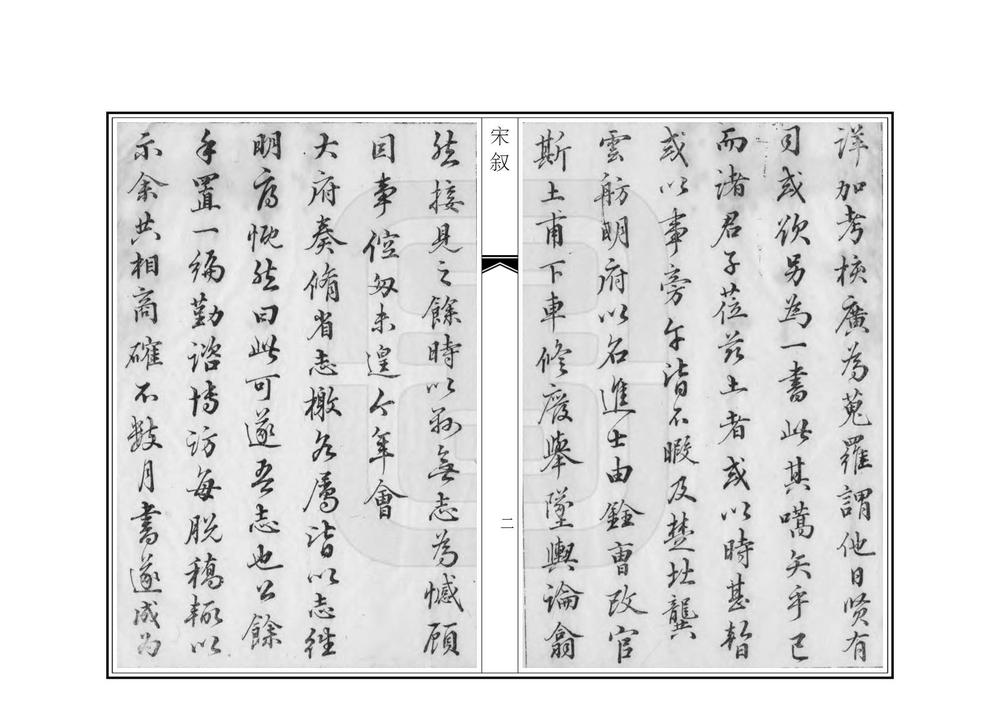 詳加考核廣為蒐羅謂他日贤有
司或欲另為一書此其嚆矢乎已
而诸君子莅兹土者或以時甚暂
或以事旁午皆不暇及楚北龔
雲舫明府以名進士由銓曹改官
斯土甫下車修廢舉墜輿論翕
宋叙
二
然接見之餘時以縣無志為憾顧
因事倥匆未遑今年會
大府奏脩省志檄各屬皆以志往
明府慨然曰此可遂吾志也公餘
手置一編勤諮博访每脱稿輙以
示余共相商確不数月書遂成为